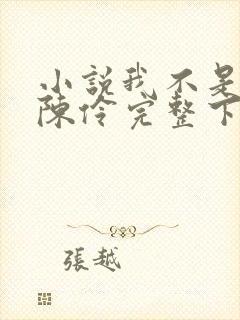 小說我不是
陳伶完整下
張越